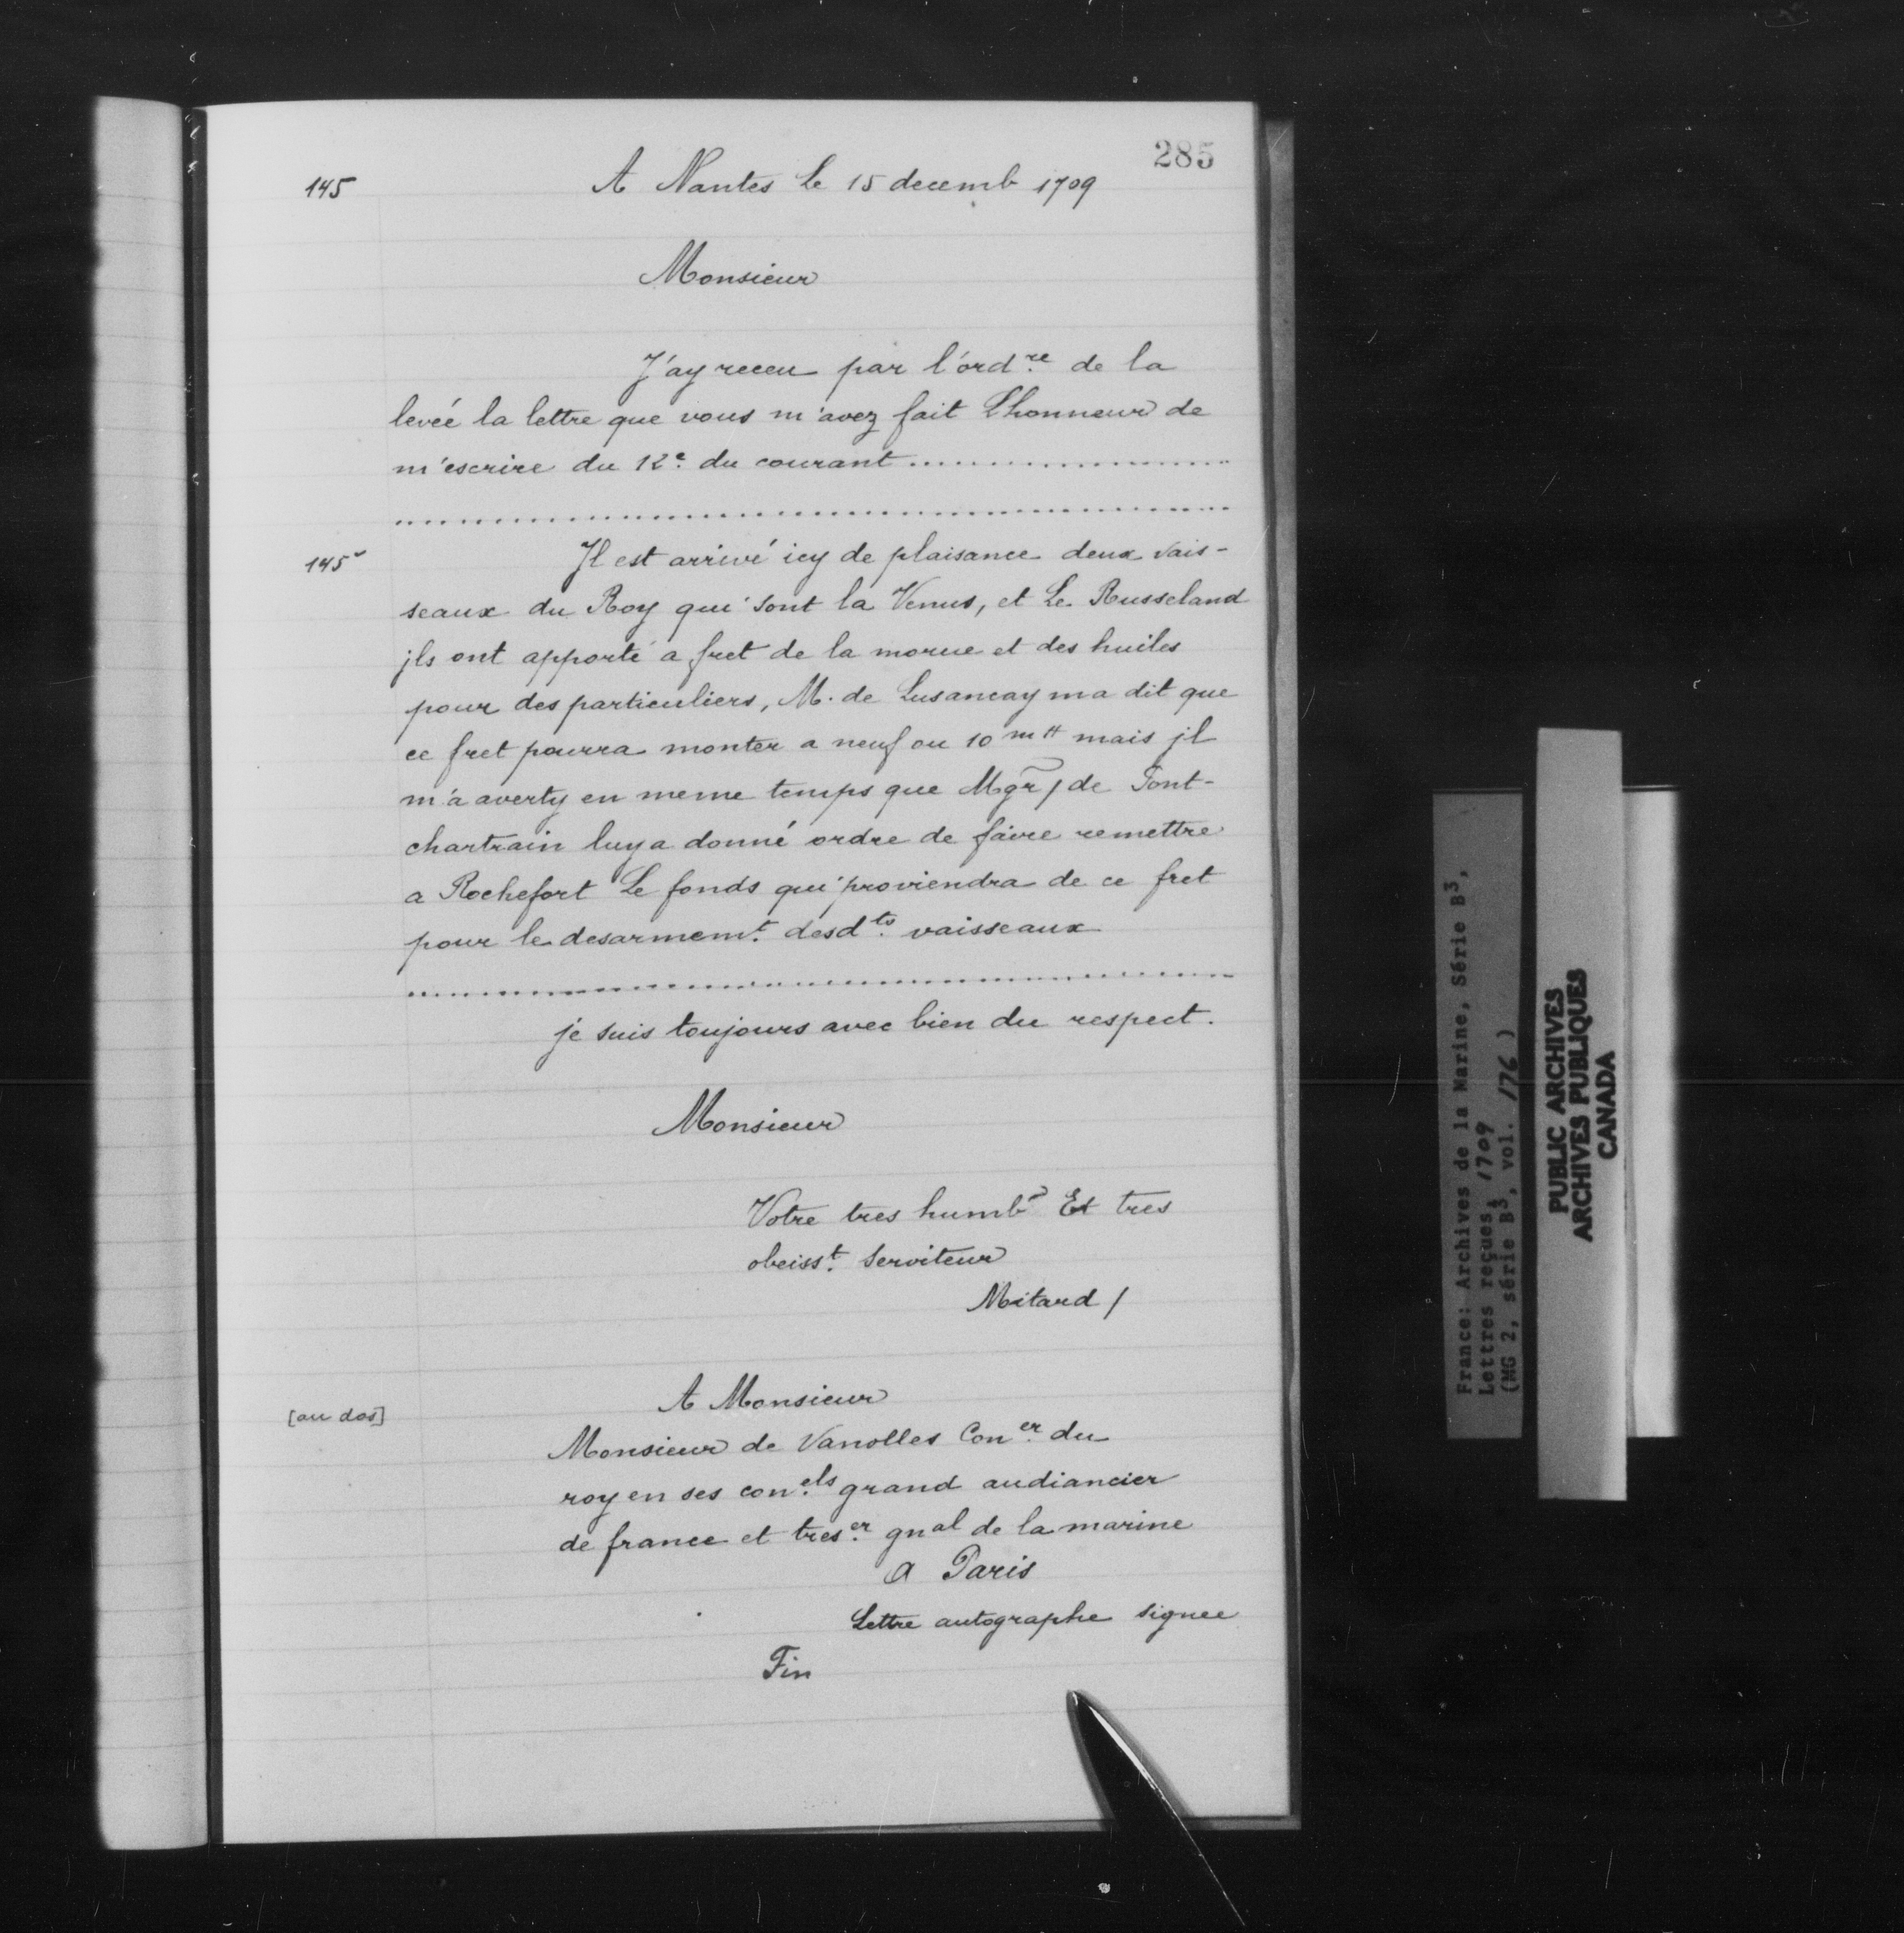 285
145
A Nantes le 15 decemb 1709
Monsieur
J'ay receu par l'ord.re de la
levée la lettre que vous m'avez fait L'honneur de
m'escrire du 12e. du courant ....................
........................................
145v
Il est arrivé icy de plaisance deux vais-
seaux du Roy qui sont la Venus, et Le Russeland
jls ont apporté a fret de la morue et des huiles
pour des particuliers, M. de Lusancay ma dit que
ce fret pourra monter a neuf ou 10 m tt mais jl
m'a averty en meme temps que Mgr / de Pont-
chartrain luy a donné ordre de faire remettre
a Rochefort Le fonds qui proviendra de ce fret
pour le desarmem.t desd.ts vaisseaux
........................................
je suis toujours avec bien du respect.
Monsieur
Votre tres humb. Et tres
obeiss.t Serviteur
Mitard /
[au dos]
A Monsieur
Monsieur de Vanolles Con.er du
roy en ses con.els grand audiancier
de france et tres.er gnal de la marine
A Paris
Lettre autographe signee
Fin
France: Archives de la Marine, Série B3,
Lettres reçues, 1709
(MG 2, série B3, vol. 176)
PUBLIC ARCHIVES
ARCHIVES PUBLIQUES
CANADA